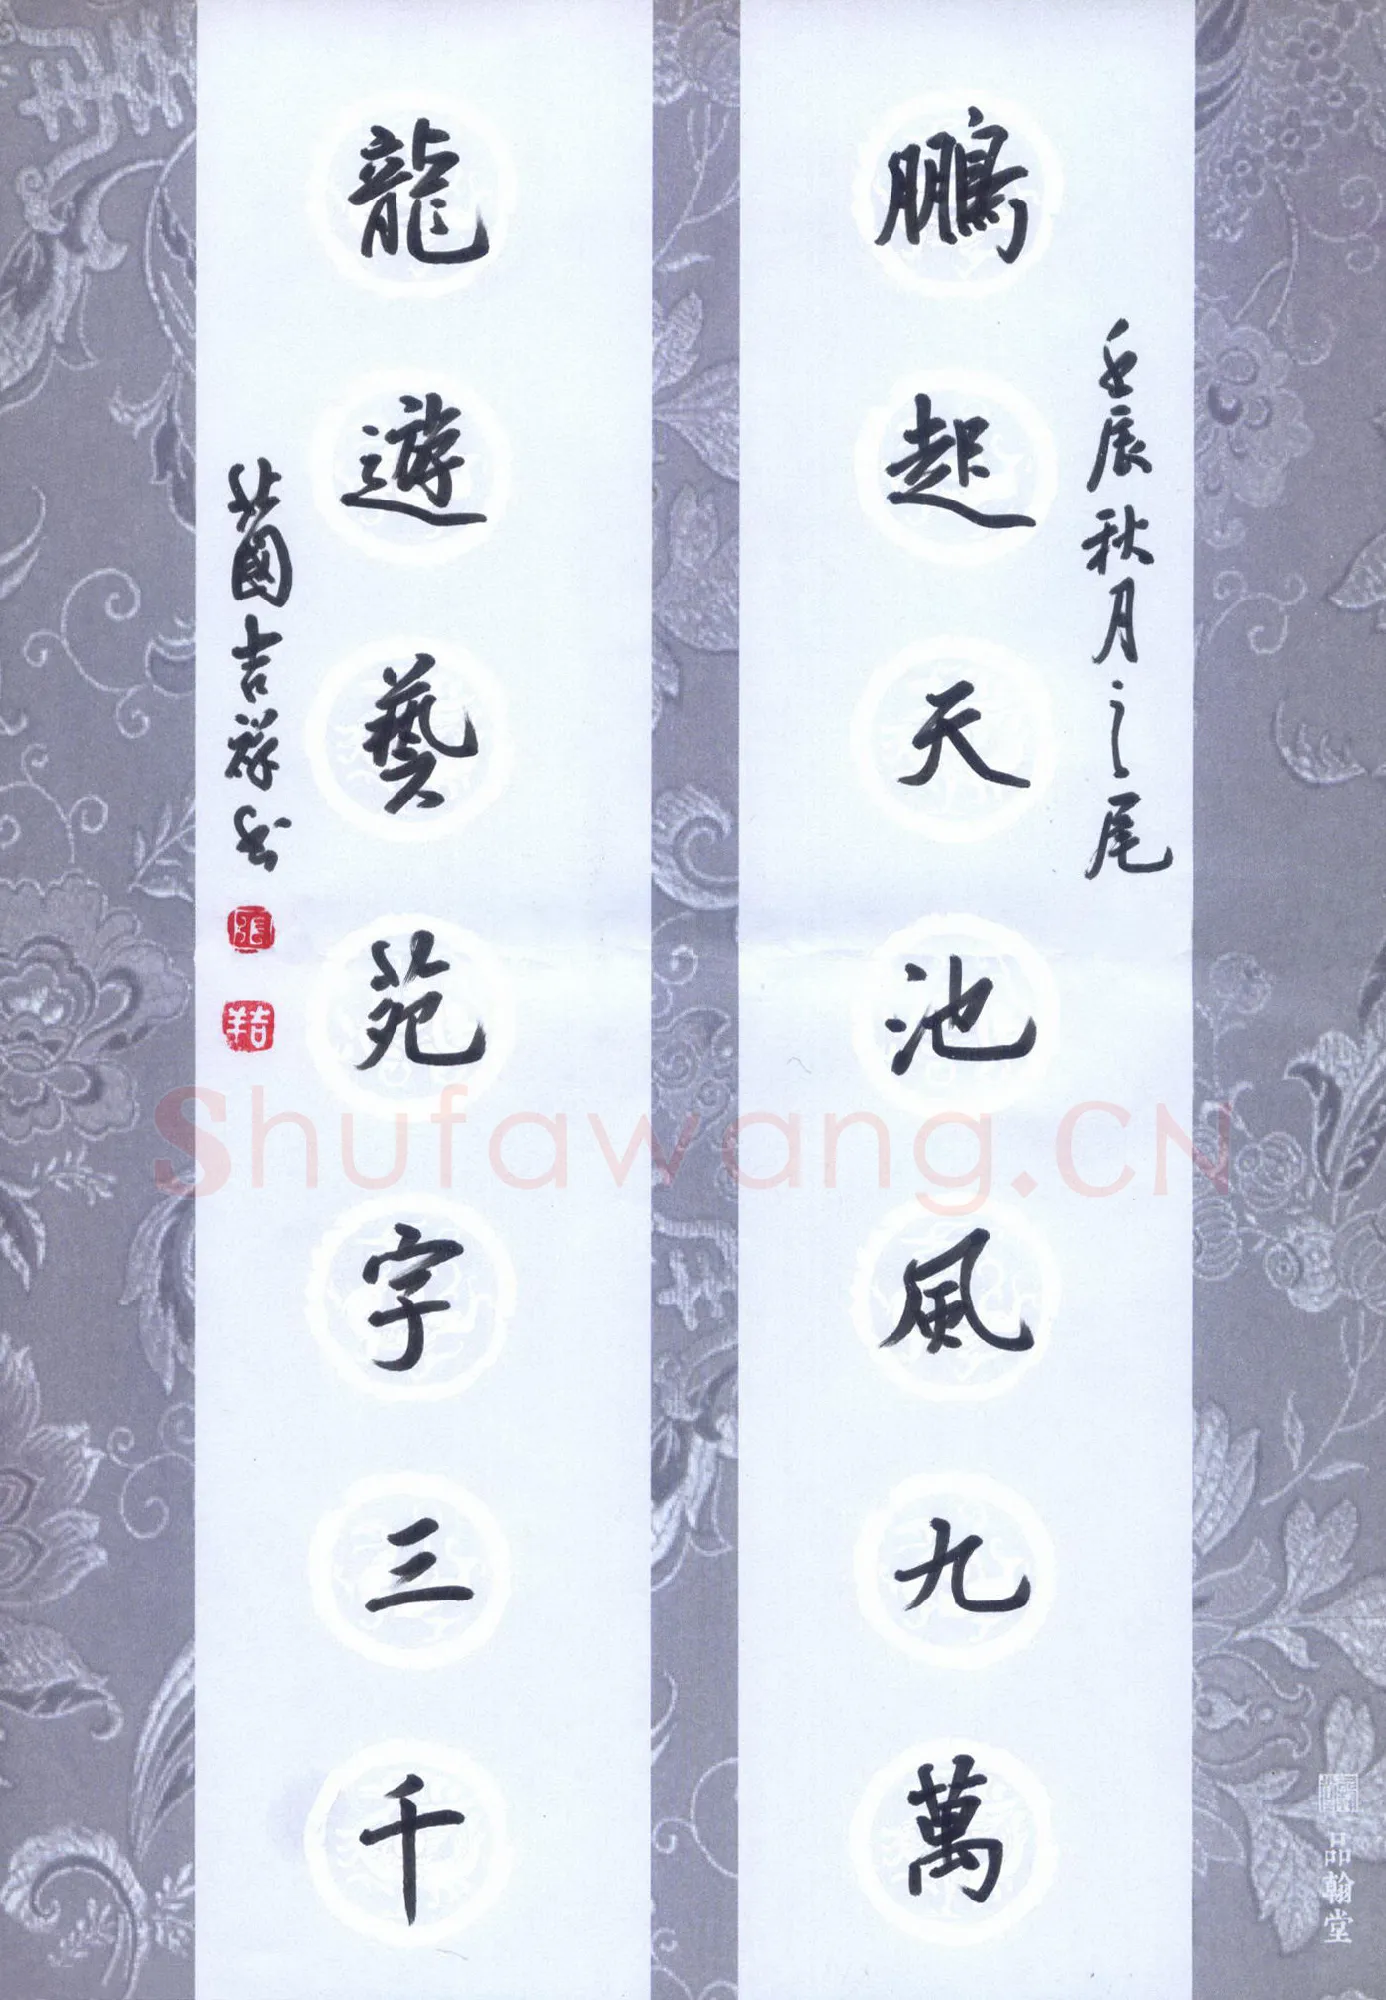 壬辰秋月之尾
鵬起天池風九萬
龍遊藝苑字三千
國吉祥書
張
吉羊
Shufawang.CN
品翰堂